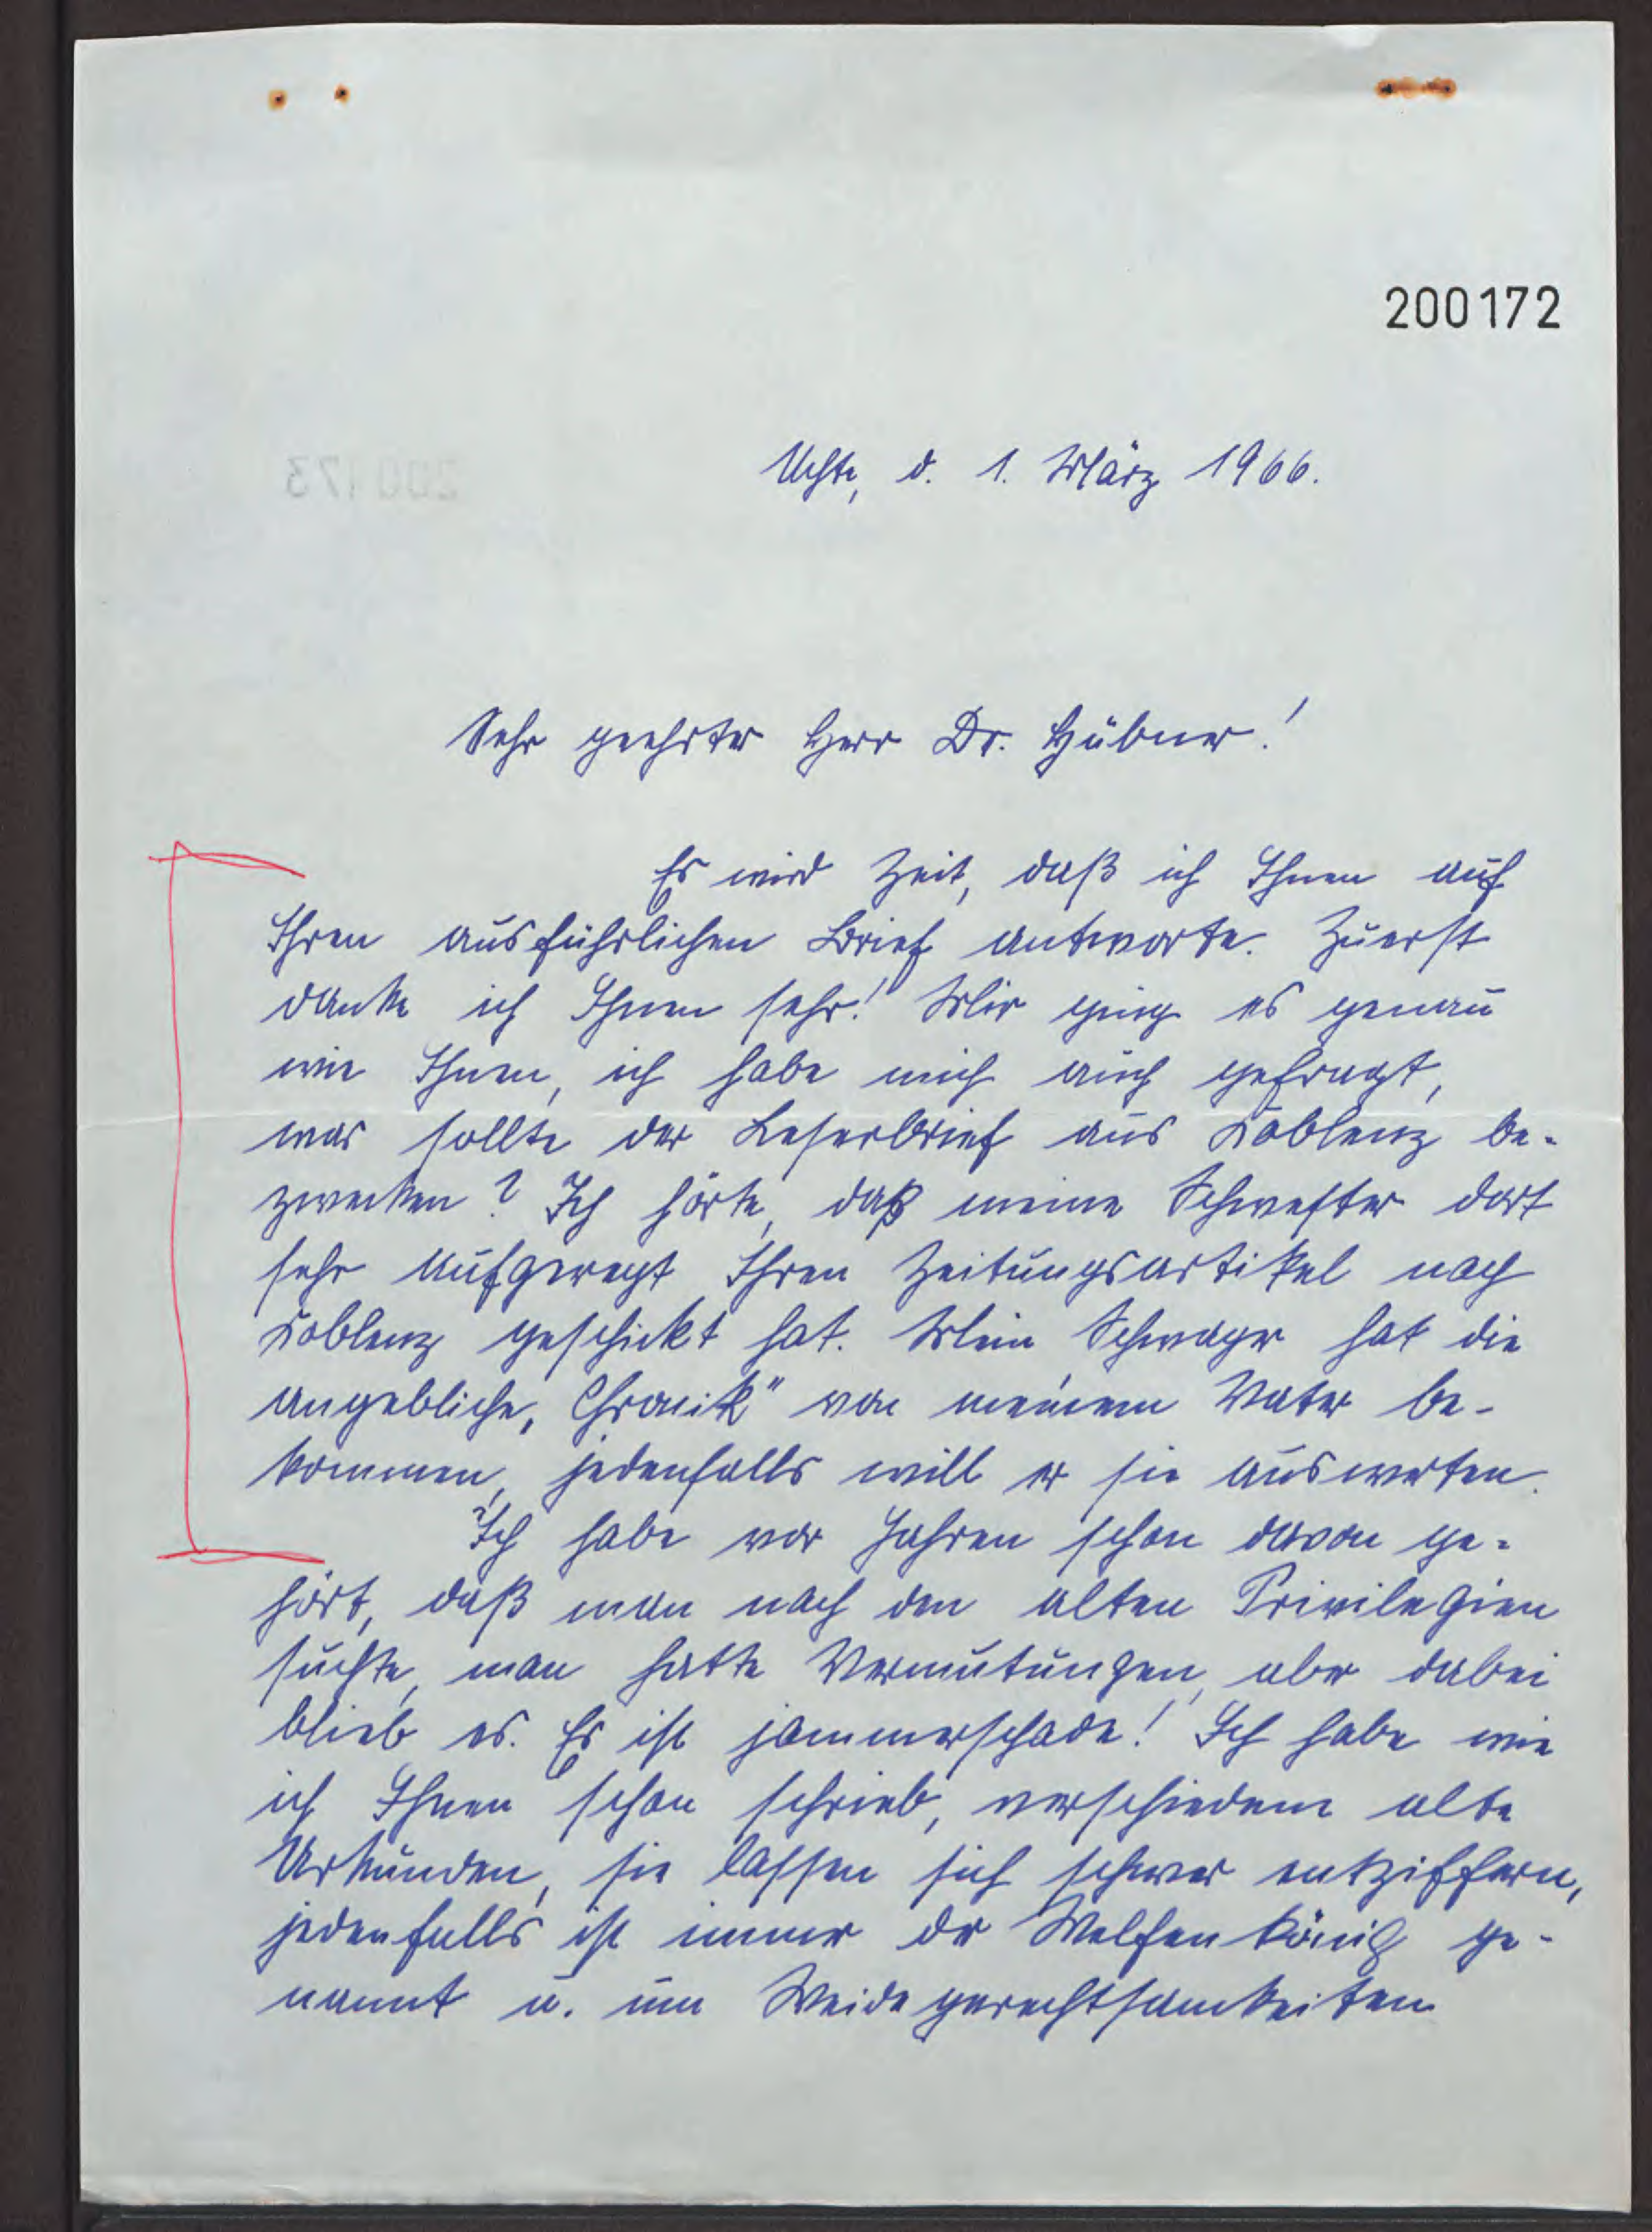 200172
Uchte, d. 1. März 1966.
200173
Sehr geehrter Herr Dr. Hübner!
Es wird Zeit, daß ich Ihnen auf
Ihren ausführlichen Brief antworte. Zuerst
danke ich Ihnen sehr! Mir ging es genau
wie Ihnen, ich habe mich auch gefragt,
was sollte der Leserbrief aus Koblenz be-
zwecken? Ich hörte, daß meine Schwester dort
sehr aufgeregt Ihren Zeitungsartikel nach
Koblenz geschickt hat. Mein Schwager hat die
angebliche „Chronik" von meinem Vater be-
kommen, jedenfalls will er sie auswerten.
Ich habe vor Jahren schon davon ge-
hört, daß man nach den alten Privilegien
suchte, man hatte Vermutungen, aber dabei
blieb es. Es ist jammerschade! Ich habe wie
ich Ihnen schon schrieb, verschiedene alte
Urkunden, sie lassen sich schwer entziffern,
jedenfalls ist immer der Welfenkönig ge-
nannt u. um Weidegerechtsamkeiten